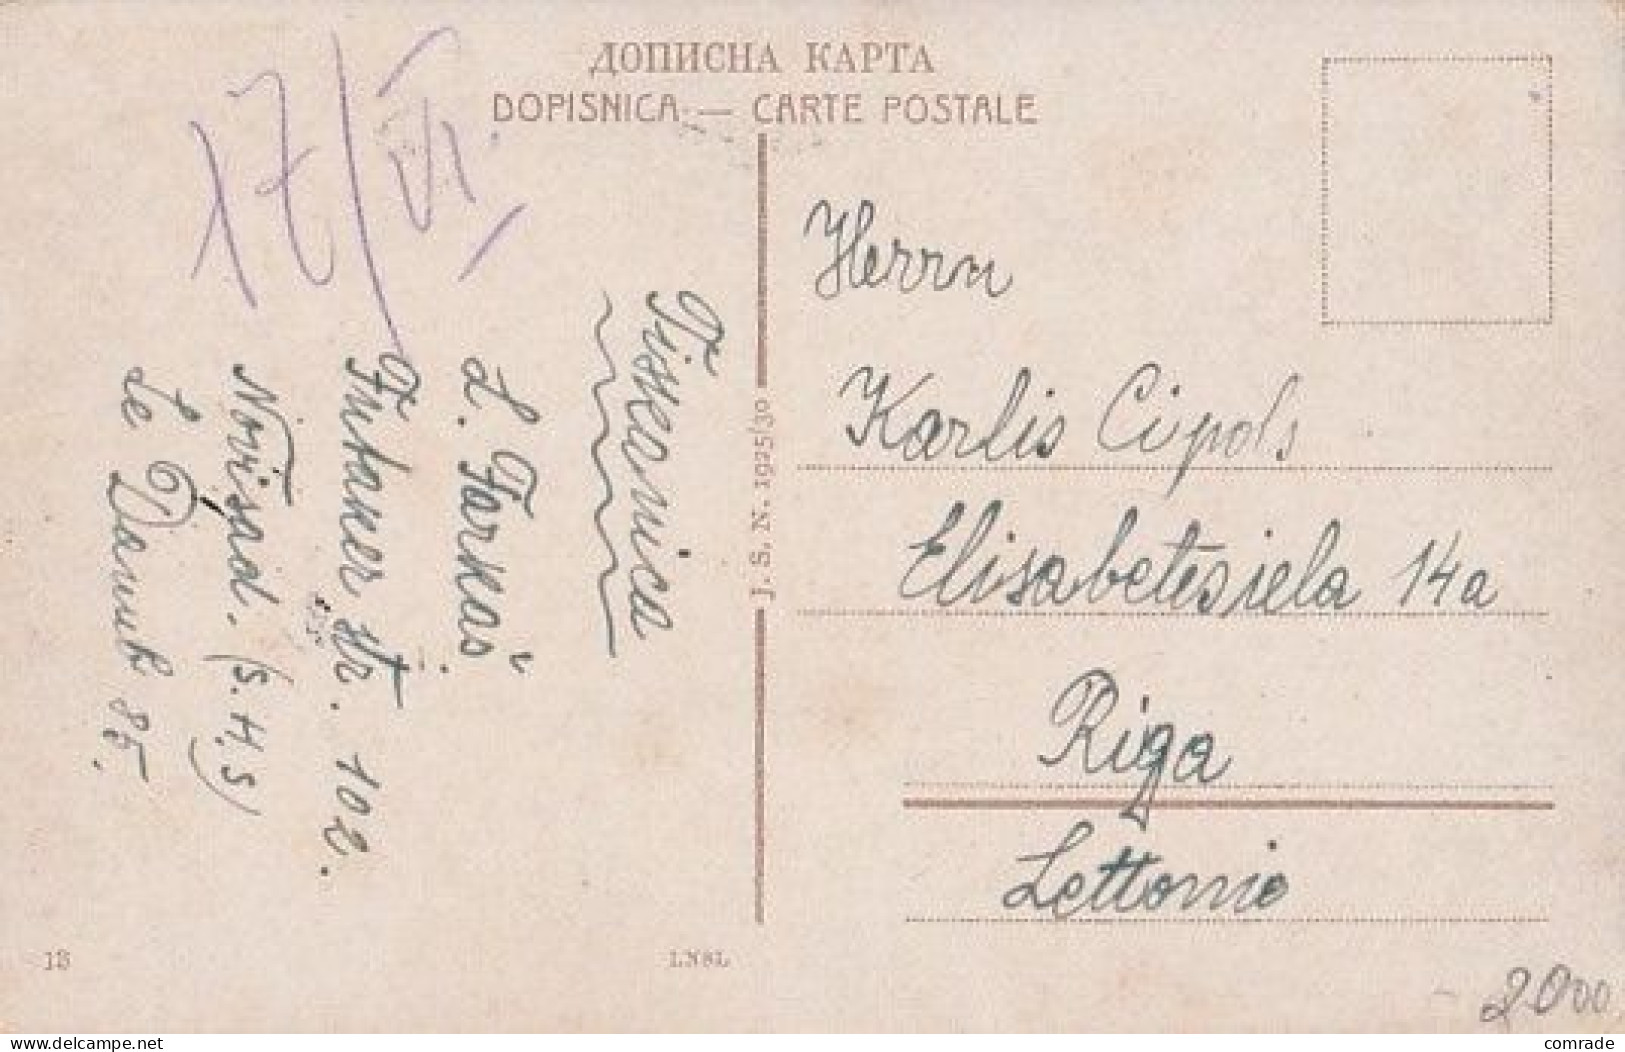 ДОПИСНА КАРТА
DOPISNICA — CARTE POSTALE
17/VI.
Tiskanica
L. Farkaš
Futaker str. 102.
Novisad. (S.H.S)
Le Danub 85.
J. S. N. 1925/30
Herrn
Karlis Cipols
Elisabetesiela 14a
Riga
Lettonie
13
LNSL
2000
comrade